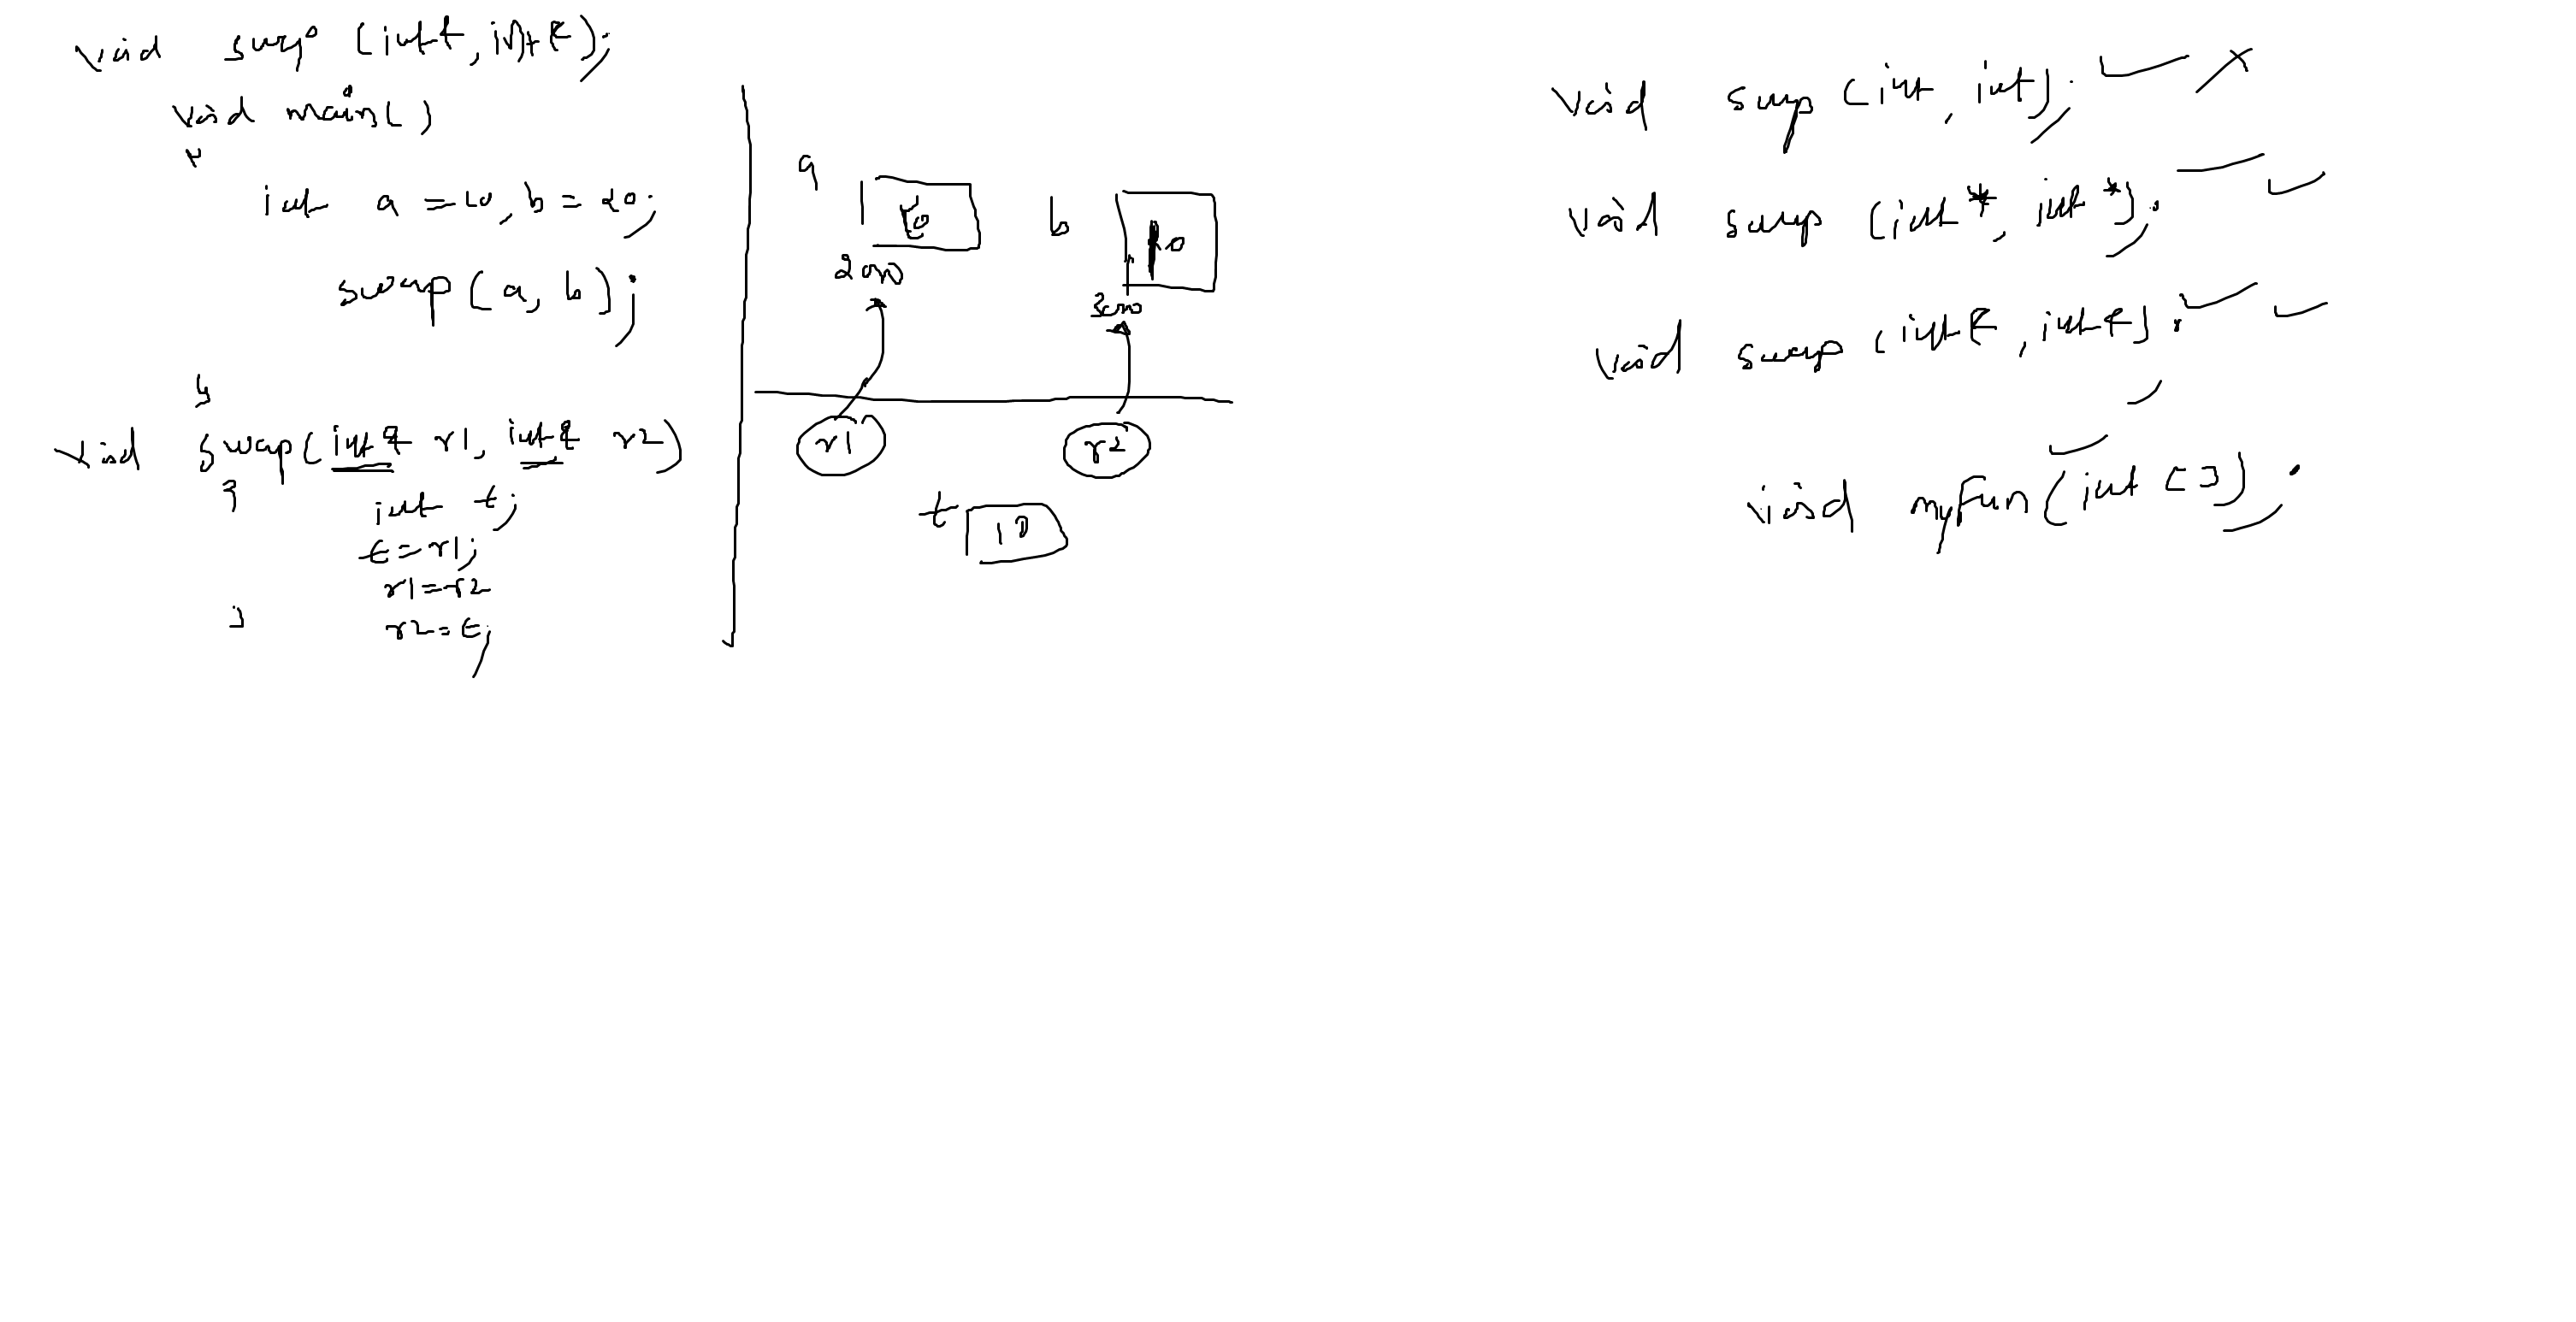 void swap (int &, int &);
void main()
{
int a = 10, b = 20;
swap(a, b);
}
void swap(int & r1, int & r2)
{
int t;
t = r1;
r1 = r2
r2 = t;
}
a
b
2000
3000
r1
r2
t 10
void swap (int, int);
void swap (int *, int *);
void swap (int &, int &);
void myFun (int []);